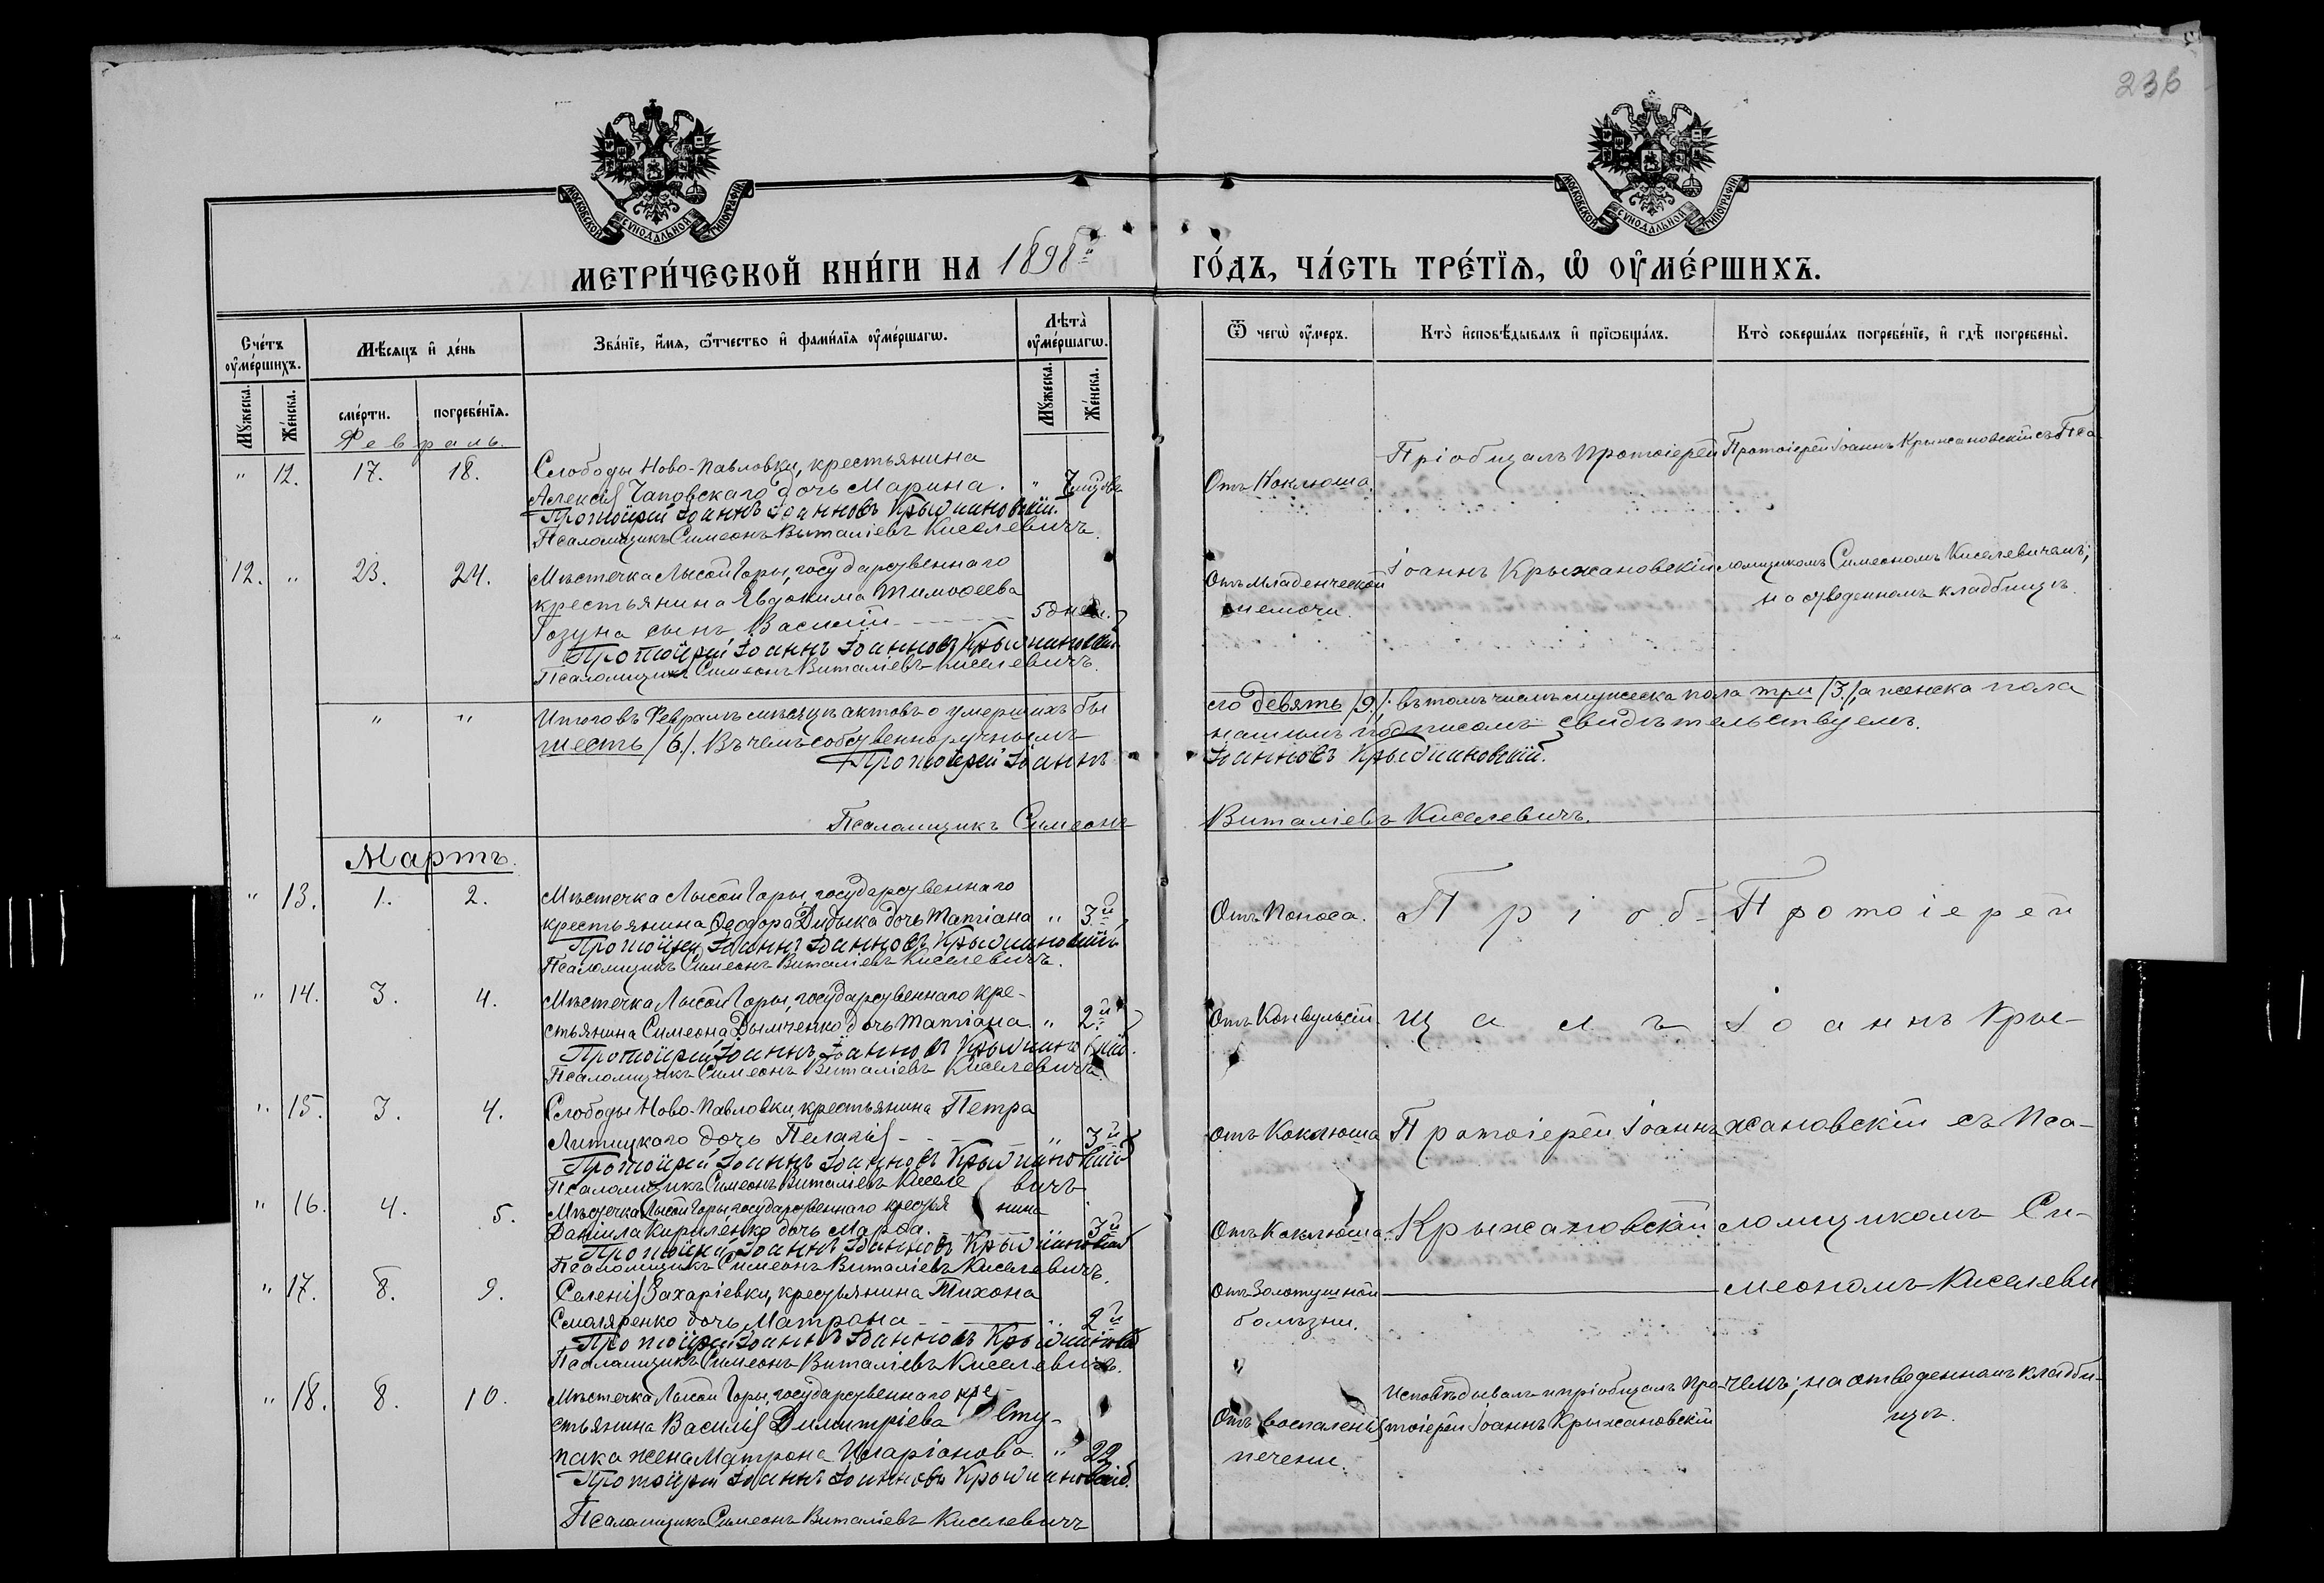 236
МОСКОВСКОЙ СѴНОДАЛЬНОЙ ТИПОГРАФІИ
МОСКОВСКОЙ СѴНОДАЛЬНОЙ ТИПОГРАФІИ
МЕТРИ́ЧЕСКОЙ КНИ́ГИ НА 1898й ГО́ДЪ, ЧА́СТЬ ТРЕ́ТЇѦ, Ѡ҆ ОУ҆МЕ́РШИХЪ.
Сче́тъ оу҆ме́ршихъ.
Мѣ́сяцъ и҆ де́нь
Зва́нїе, и҆́мѧ, ѻ҆́тчество и҆ фами́лїѧ оу҆ме́ршагѡ.
Лѣ́та̀ оу҆ме́ршагѡ.
Ѿ чегѡ̀ оу҆́меръ.
Кто̀ и҆сповѣ́дывалъ и҆ прїѡбща́лъ.
Кто̀ соверша́лъ погребе́нїе, и҆ гдѣ̀ погребены̀.
Му́жеска.
Же́нска.
сме́рти.
погребе́нїѧ.
Му́жеска.
Же́нска.
Февраль.
" 12. 17. 18. Слободы Ново-Павловки, крестьянина
Алексія Чаповскаго дочь Марина. "
Протоіерей Іоаннъ Іоанновъ Крыжановскій.
Псаломщикъ Симеонъ Виталіевъ Киселевичъ.
Отъ Коклюша.
Пріобщалъ Протоіерей
Протоіерей Іоаннъ Крыжановскій съ Пса
12. " 23. 24. Мѣстечка Лысой Горы, государственнаго
крестьянина Евдокима Тимоѳеева
Гозуна сынъ Василій 5 дней.
Протоіерей Іоаннъ Іоанновъ Крыжановскій
Псаломщикъ Симеонъ Виталіевъ Киселевичъ.
Отъ Младенческой
немочи.
Іоаннъ Крыжановскій
ломщикомъ Симеономъ Киселевичемъ;
на отведенномъ кладбищѣ.
" " Итого въ Февралѣ мѣсяцѣ актовъ о умершихъ бы
ло девять /9/. въ томъ числѣ мужеска пола три /3./, а женска пола
шесть /6/. Въ чемъ собственноручнымъ
нашимъ подписомъ свидѣтельствуемъ.
Протоіерей Іоаннъ
Іоанновъ Крыжановскій.
Псаломщикъ Симеонъ
Виталіевъ Киселевичъ.
Мартъ.
" 13. 1. 2. Мѣстечка Лысой Горы, государственнаго
крестьянина Ѳеодора Дидыка дочь Татіана " 3й
Протоіерей Іоаннъ Іоанновъ Крыжановскій
Псаломщикъ Симеонъ Виталіевъ Киселевичъ.
Отъ Поноса.
Пріоб-
Протоіерей
" 14. 3. 4. Мѣстечка Лысой Горы, государственнаго кре-
стьянина Симеона Дымченко дочь Татіана " 2й
Протоіерей Іоаннъ Іоанновъ Крыжановскій.
Псаломщикъ Симеонъ Виталіевъ Киселевичъ.
Отъ Конвульсій.
щалъ
Іоаннъ Кры-
" 15. 3. 4. Слободы Ново-Павловки, крестьянина Петра
Литицкаго дочь Пелагія " 3й
Протоіерей Іоаннъ Іоанновъ Крыжановскій
Псаломщикъ Симеонъ Виталіевъ Киселевичъ
отъ Коклюша
Протоіерей Іоаннъ
жановскій съ Пса-
" 16. 4. 5. Мѣстечка Лысой Горы государственнаго крестьянина
Даніила Кириленко дочь Марѳа. " 3й
Протоіерей Іоаннъ Іоанновъ Крыжановскій
Псаломщикъ Симеонъ Виталіевъ Киселевичъ.
Отъ Коклюша.
Крыжановскій
ломщикомъ Си-
" 17. 8. 9. Селенія Захаріевки, крестьянина Тихона
Смоляренко дочь Матрона " 2й
Протоіерей Іоаннъ Іоанновъ Крыжановскій
Псаломщикъ Симеонъ Виталіевъ Киселевичъ.
отъ Золотушной
болѣзни.
меономъ Киселеви
" 18. 8. 10. Мѣстечка Лысой Горы, государственнаго кре-
стьянина Василія Димитріева Сту-
пака жена Матрона Иларіонова. " 22
Протоіерей Іоаннъ Іоанновъ Крыжановскій.
Псаломщикъ Симеонъ Виталіевъ Киселевичъ
Отъ воспаленія
печени.
Исповѣдывалъ и пріобщалъ Про-
тоіерей Іоаннъ Крыжановскій
чемъ; на отведенномъ кладби-
щѣ.